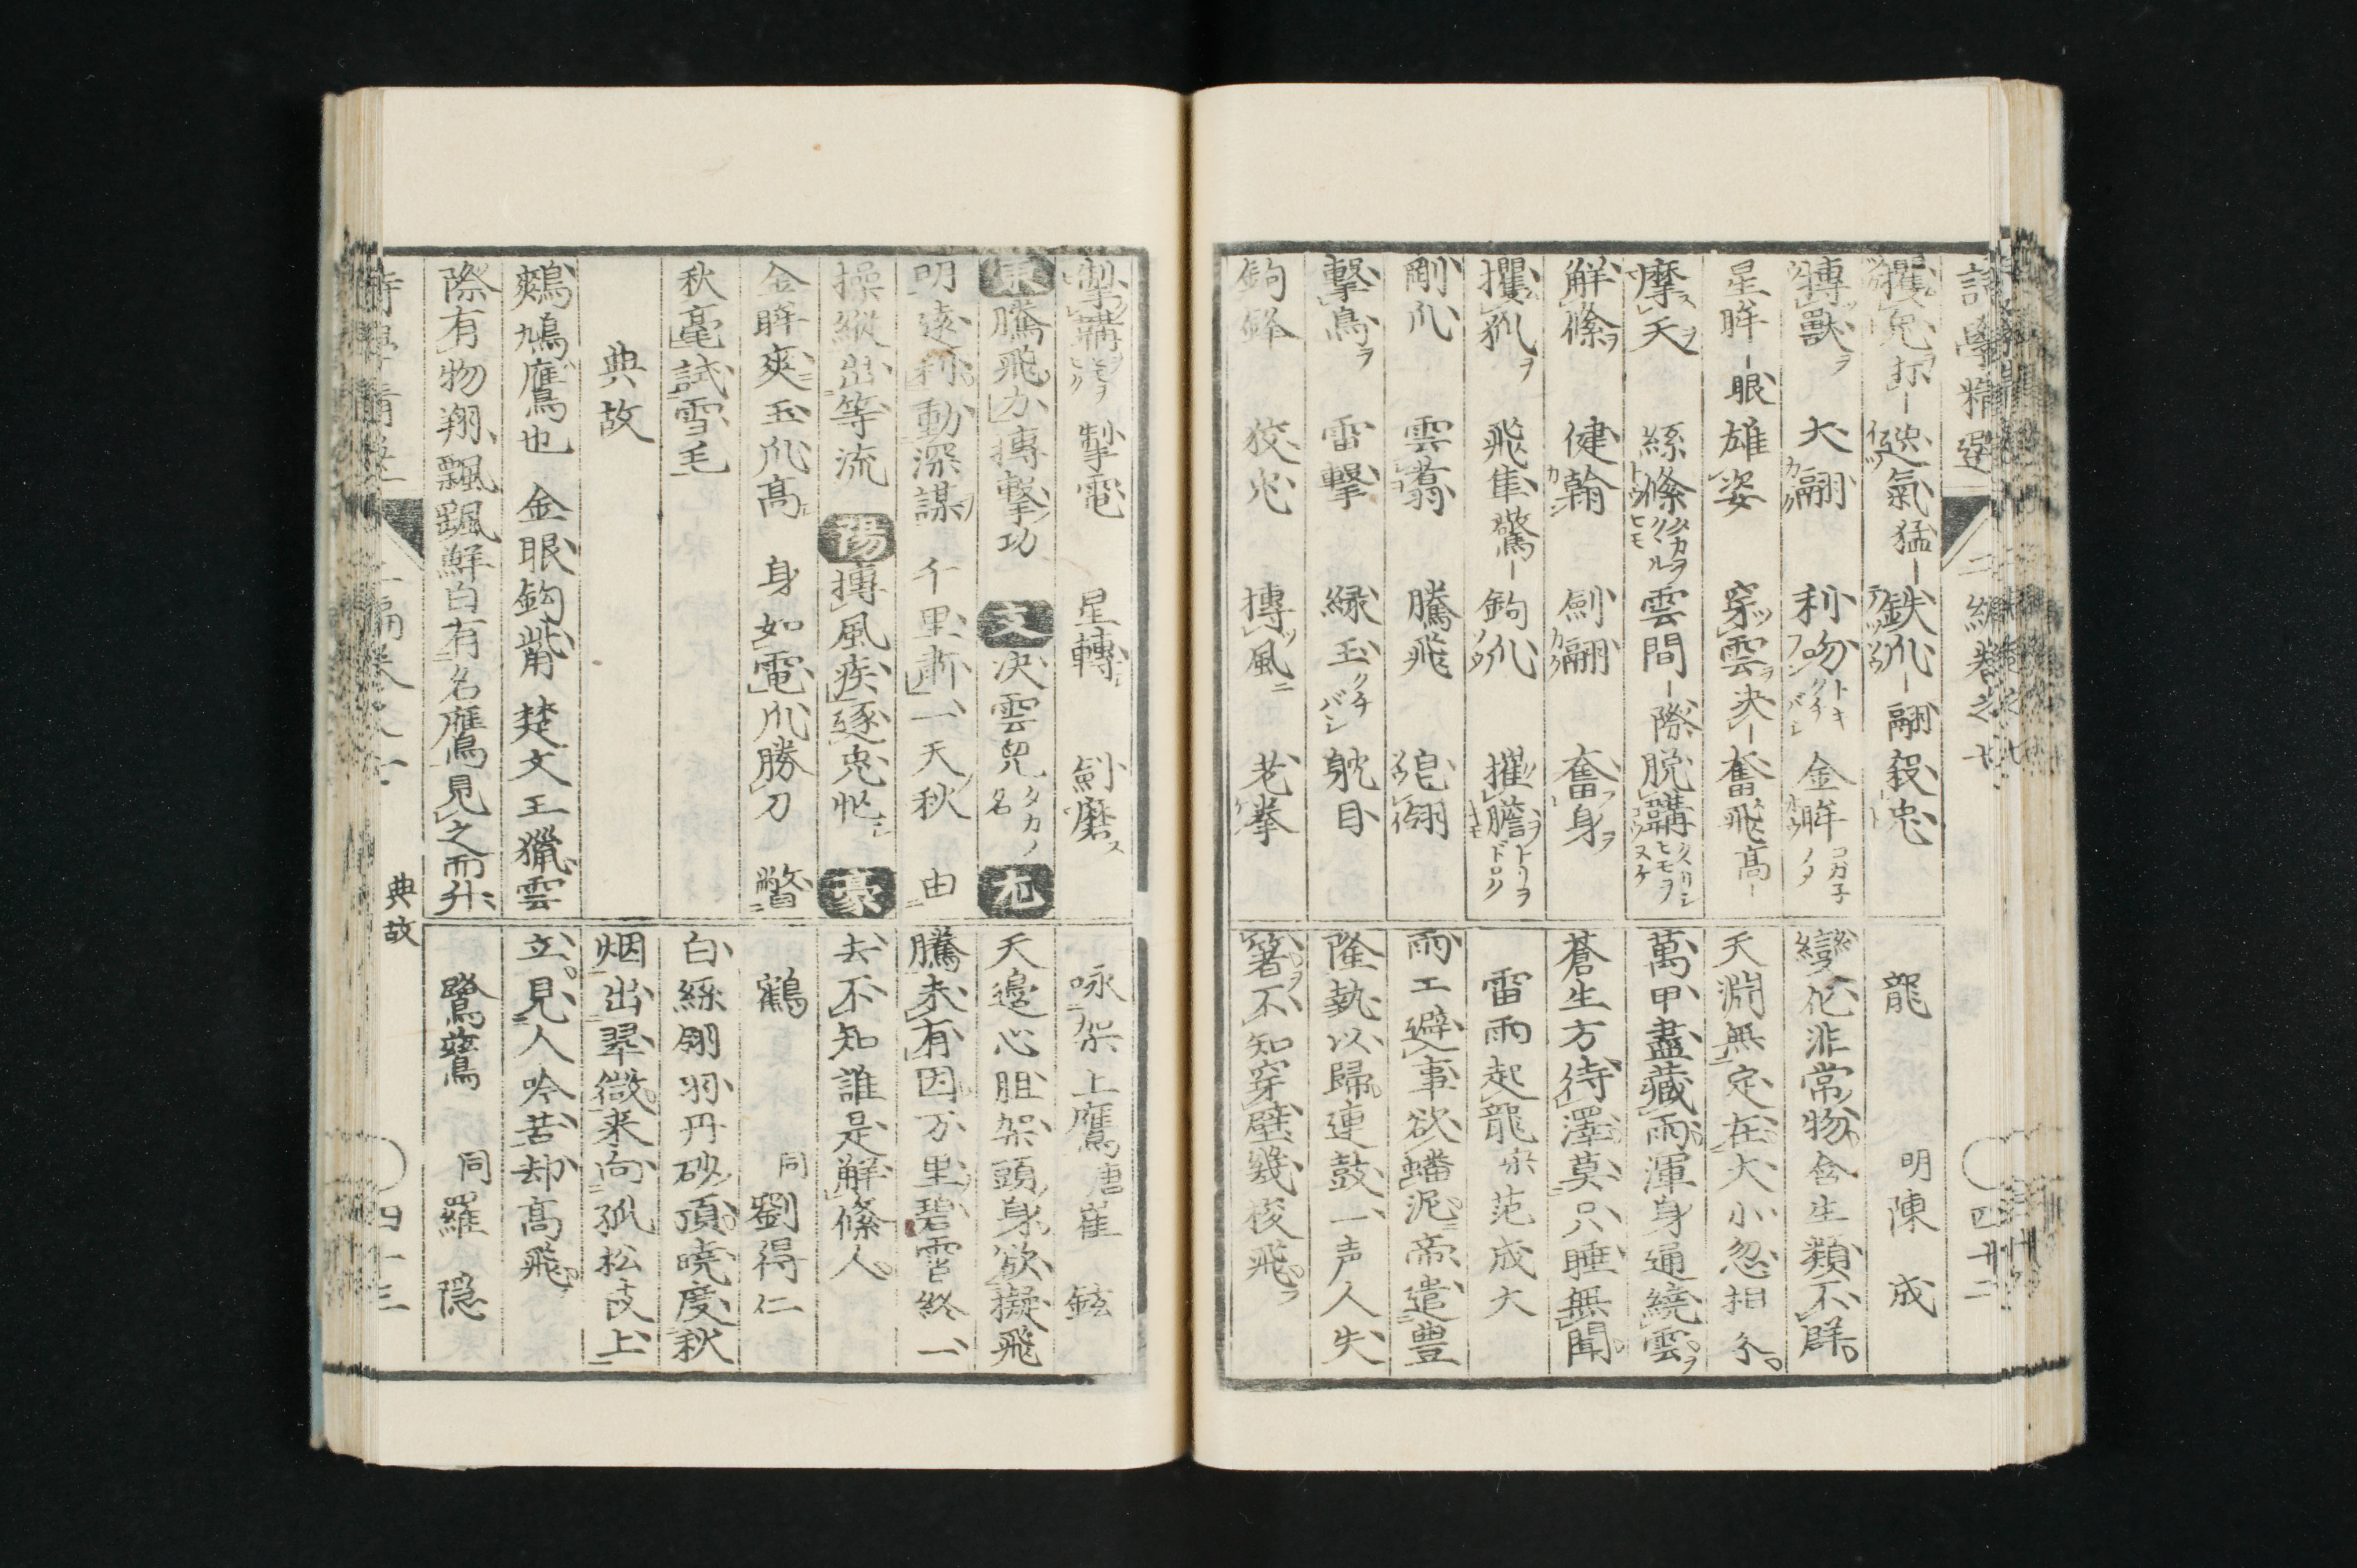 詩學精選 二編卷之七 四十二
攫兎 捄― 逸氣 猛― 鉄爪 ―翮 殺兎
搏獸ヲ 大翮 利吻 金眸
星眸 ―眼 雄姿 穿雲 决― 奮飛 高―
摩天ヲ 絲絛 雲間 ―際 脱韝
解絛ヲ 健翰 劍翮 奮身ヲ
攫狐ヲ 飛隼 驚― 鉤爪 摧膽
剛爪 雲翥 騰飛 皂翎
擊鳥ヲ 雷擊 緑玉 躭目
鉤鋒 狡兎 摶風ニ 老拳
龍 明 陳成
變化非常物含生類不群
天淵無定在大小忽相分
萬甲盡藏雨渾身通繞雲
蒼生方待澤莫只睡無聞
雷雨起龍 宋 范成大
雨工避事欲蟠泥帝遣豊
隆執以歸連鼓一声人失
箸不知穿壁幾梭飛
掣韝 掣電 星轉 劍磨
東 騰飛力摶擊功 文 决雲兒 タカノ名 尤
明遠利動深謀 千里斾一天秋 由
操縱出等流 陽 摶風疾逐兎忙 豪
金眸爽玉爪高 身如電爪勝刀 瞥
秋毫試雪毛
典故
鷞鳩鷹也 金眼鉤觜 楚文王獵雲
際有物翔飄颻鮮白有名鷹見之而升
咏架上鷹 唐 崔鉉
天邊心胆架頭身欲擬飛
騰未有因万里碧霄終一
去不知誰是解絛人
鶴 同 劉得仁
白絲翎羽丹砂頂曉度秋
烟出翠微来向孤松枝上
立見人吟苦却高飛
鷺鷥 同 羅隠
詩學精選 二編卷之七 典故 四十三